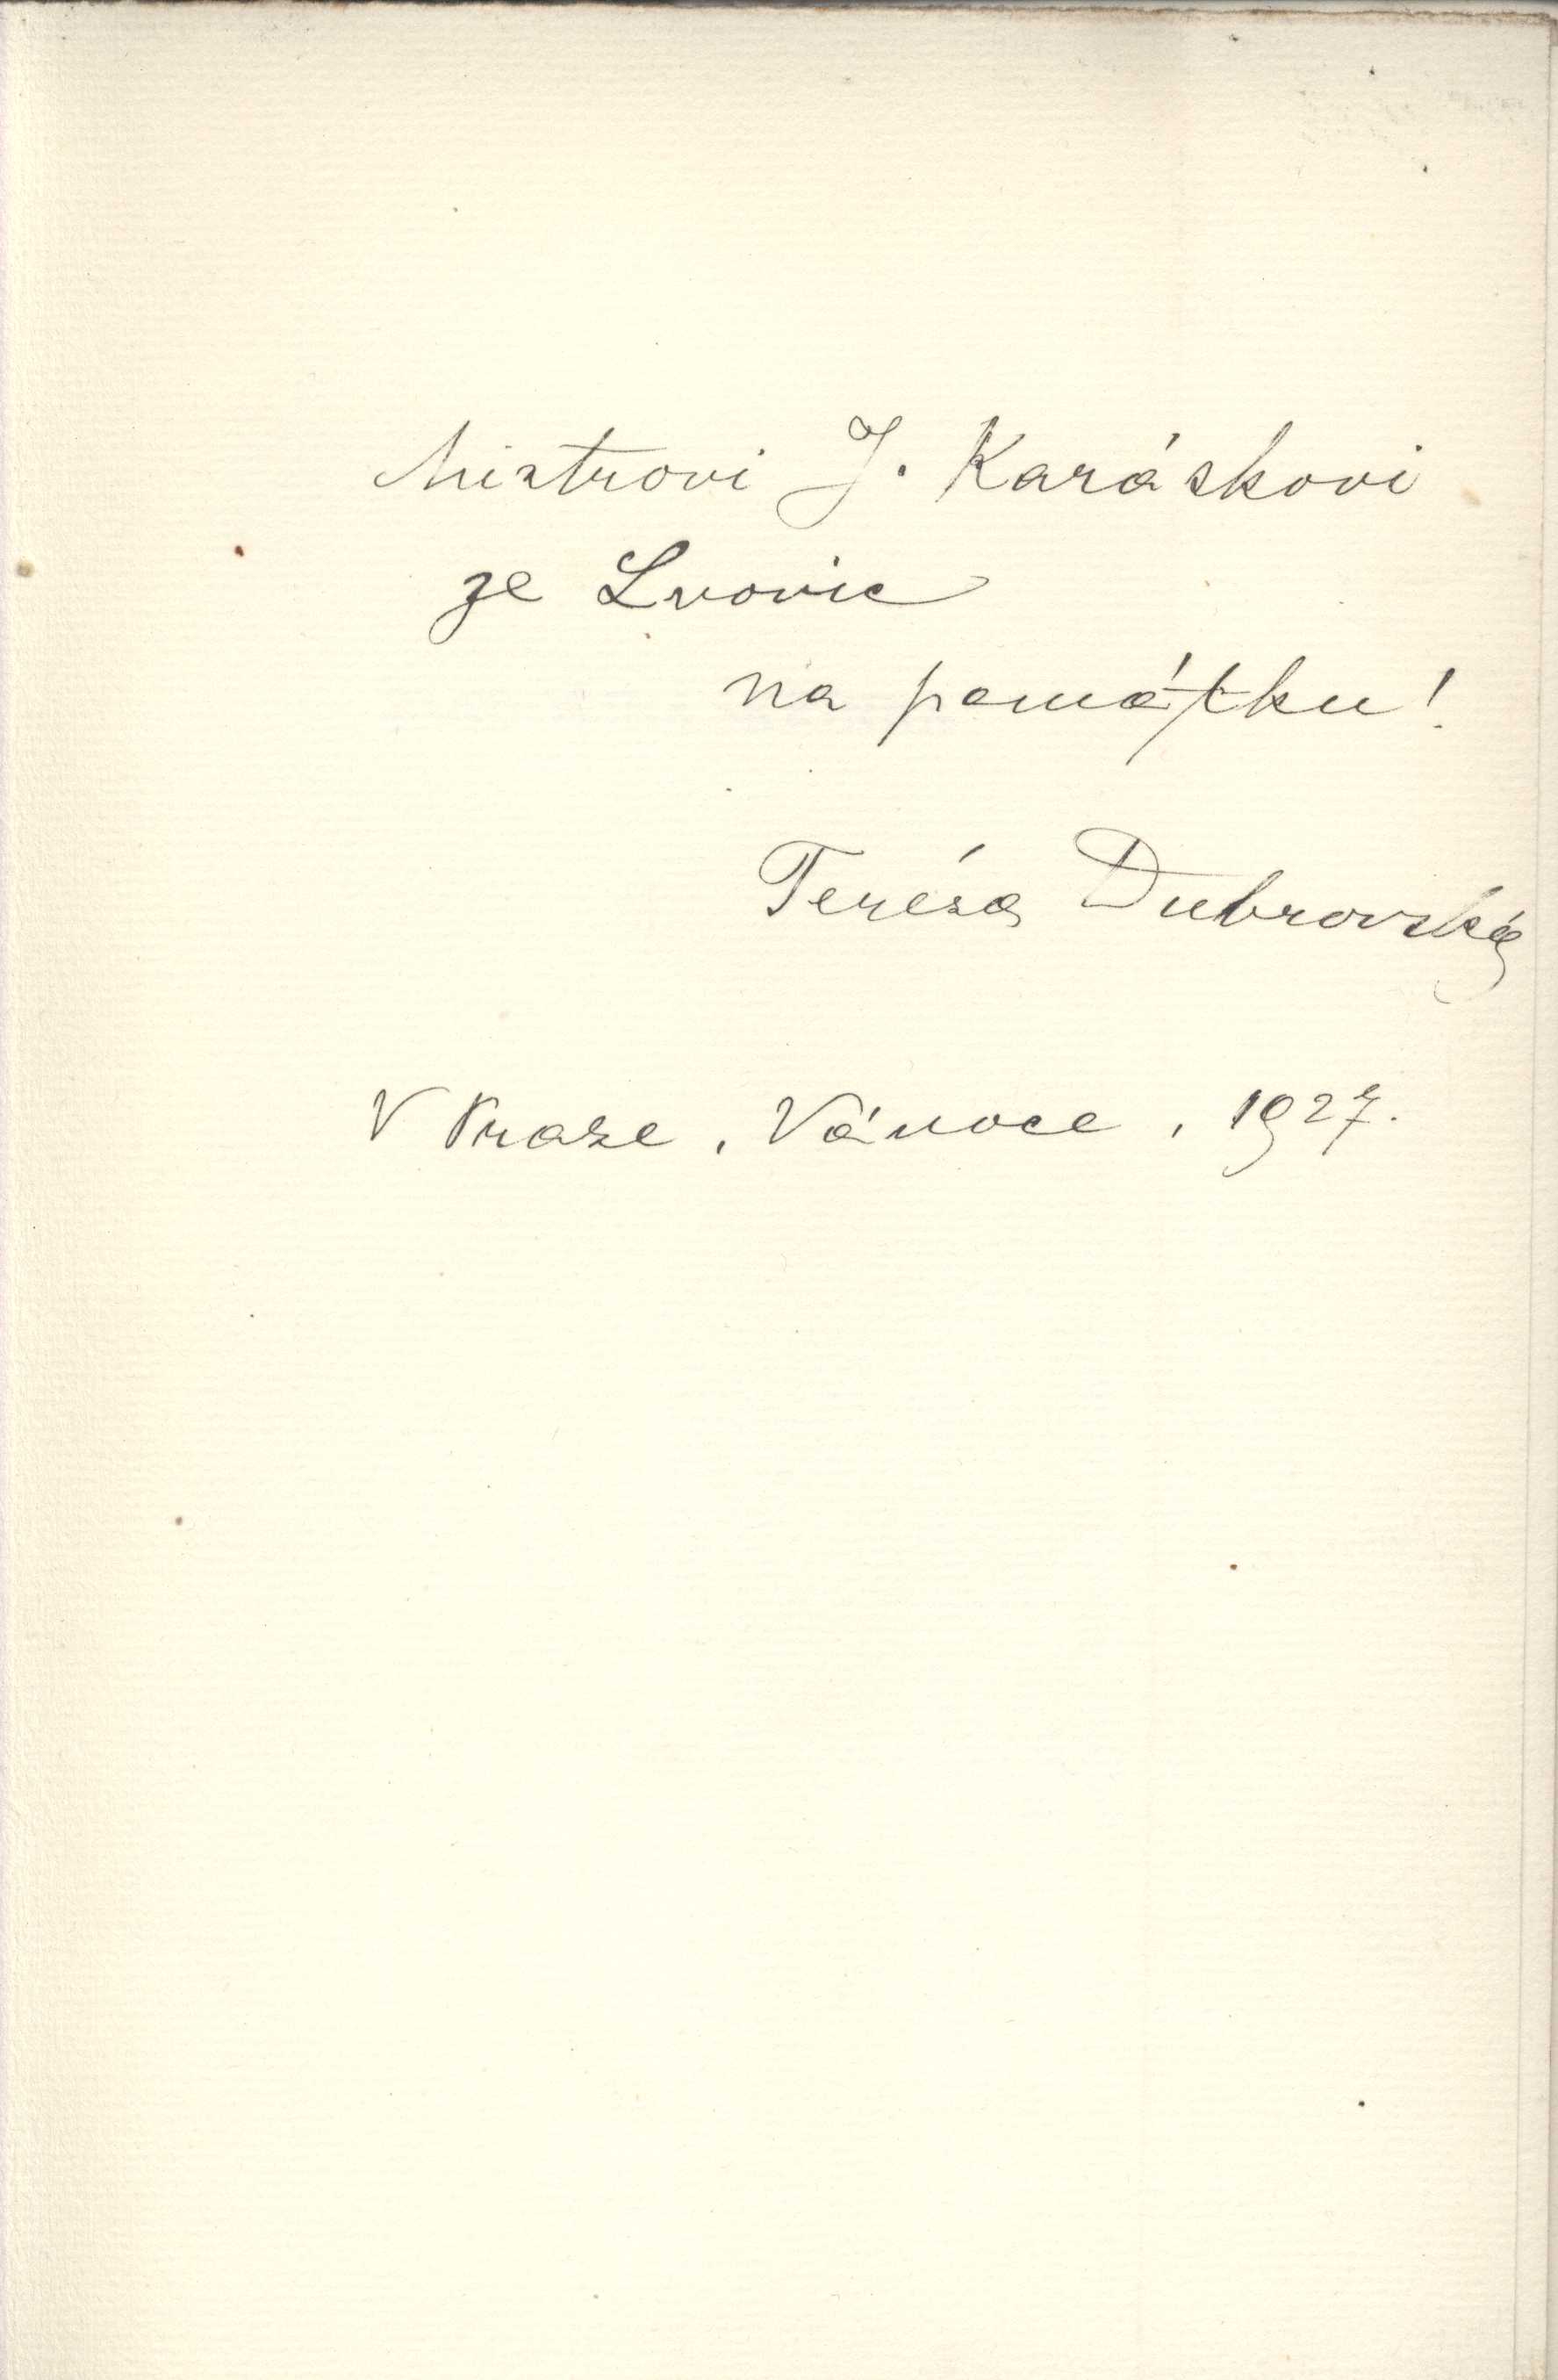 Mistrovi J. Karáskovi
ze Lvovic
na památku!
Teréza Dubrovská
V Praze, Vánoce, 1927.